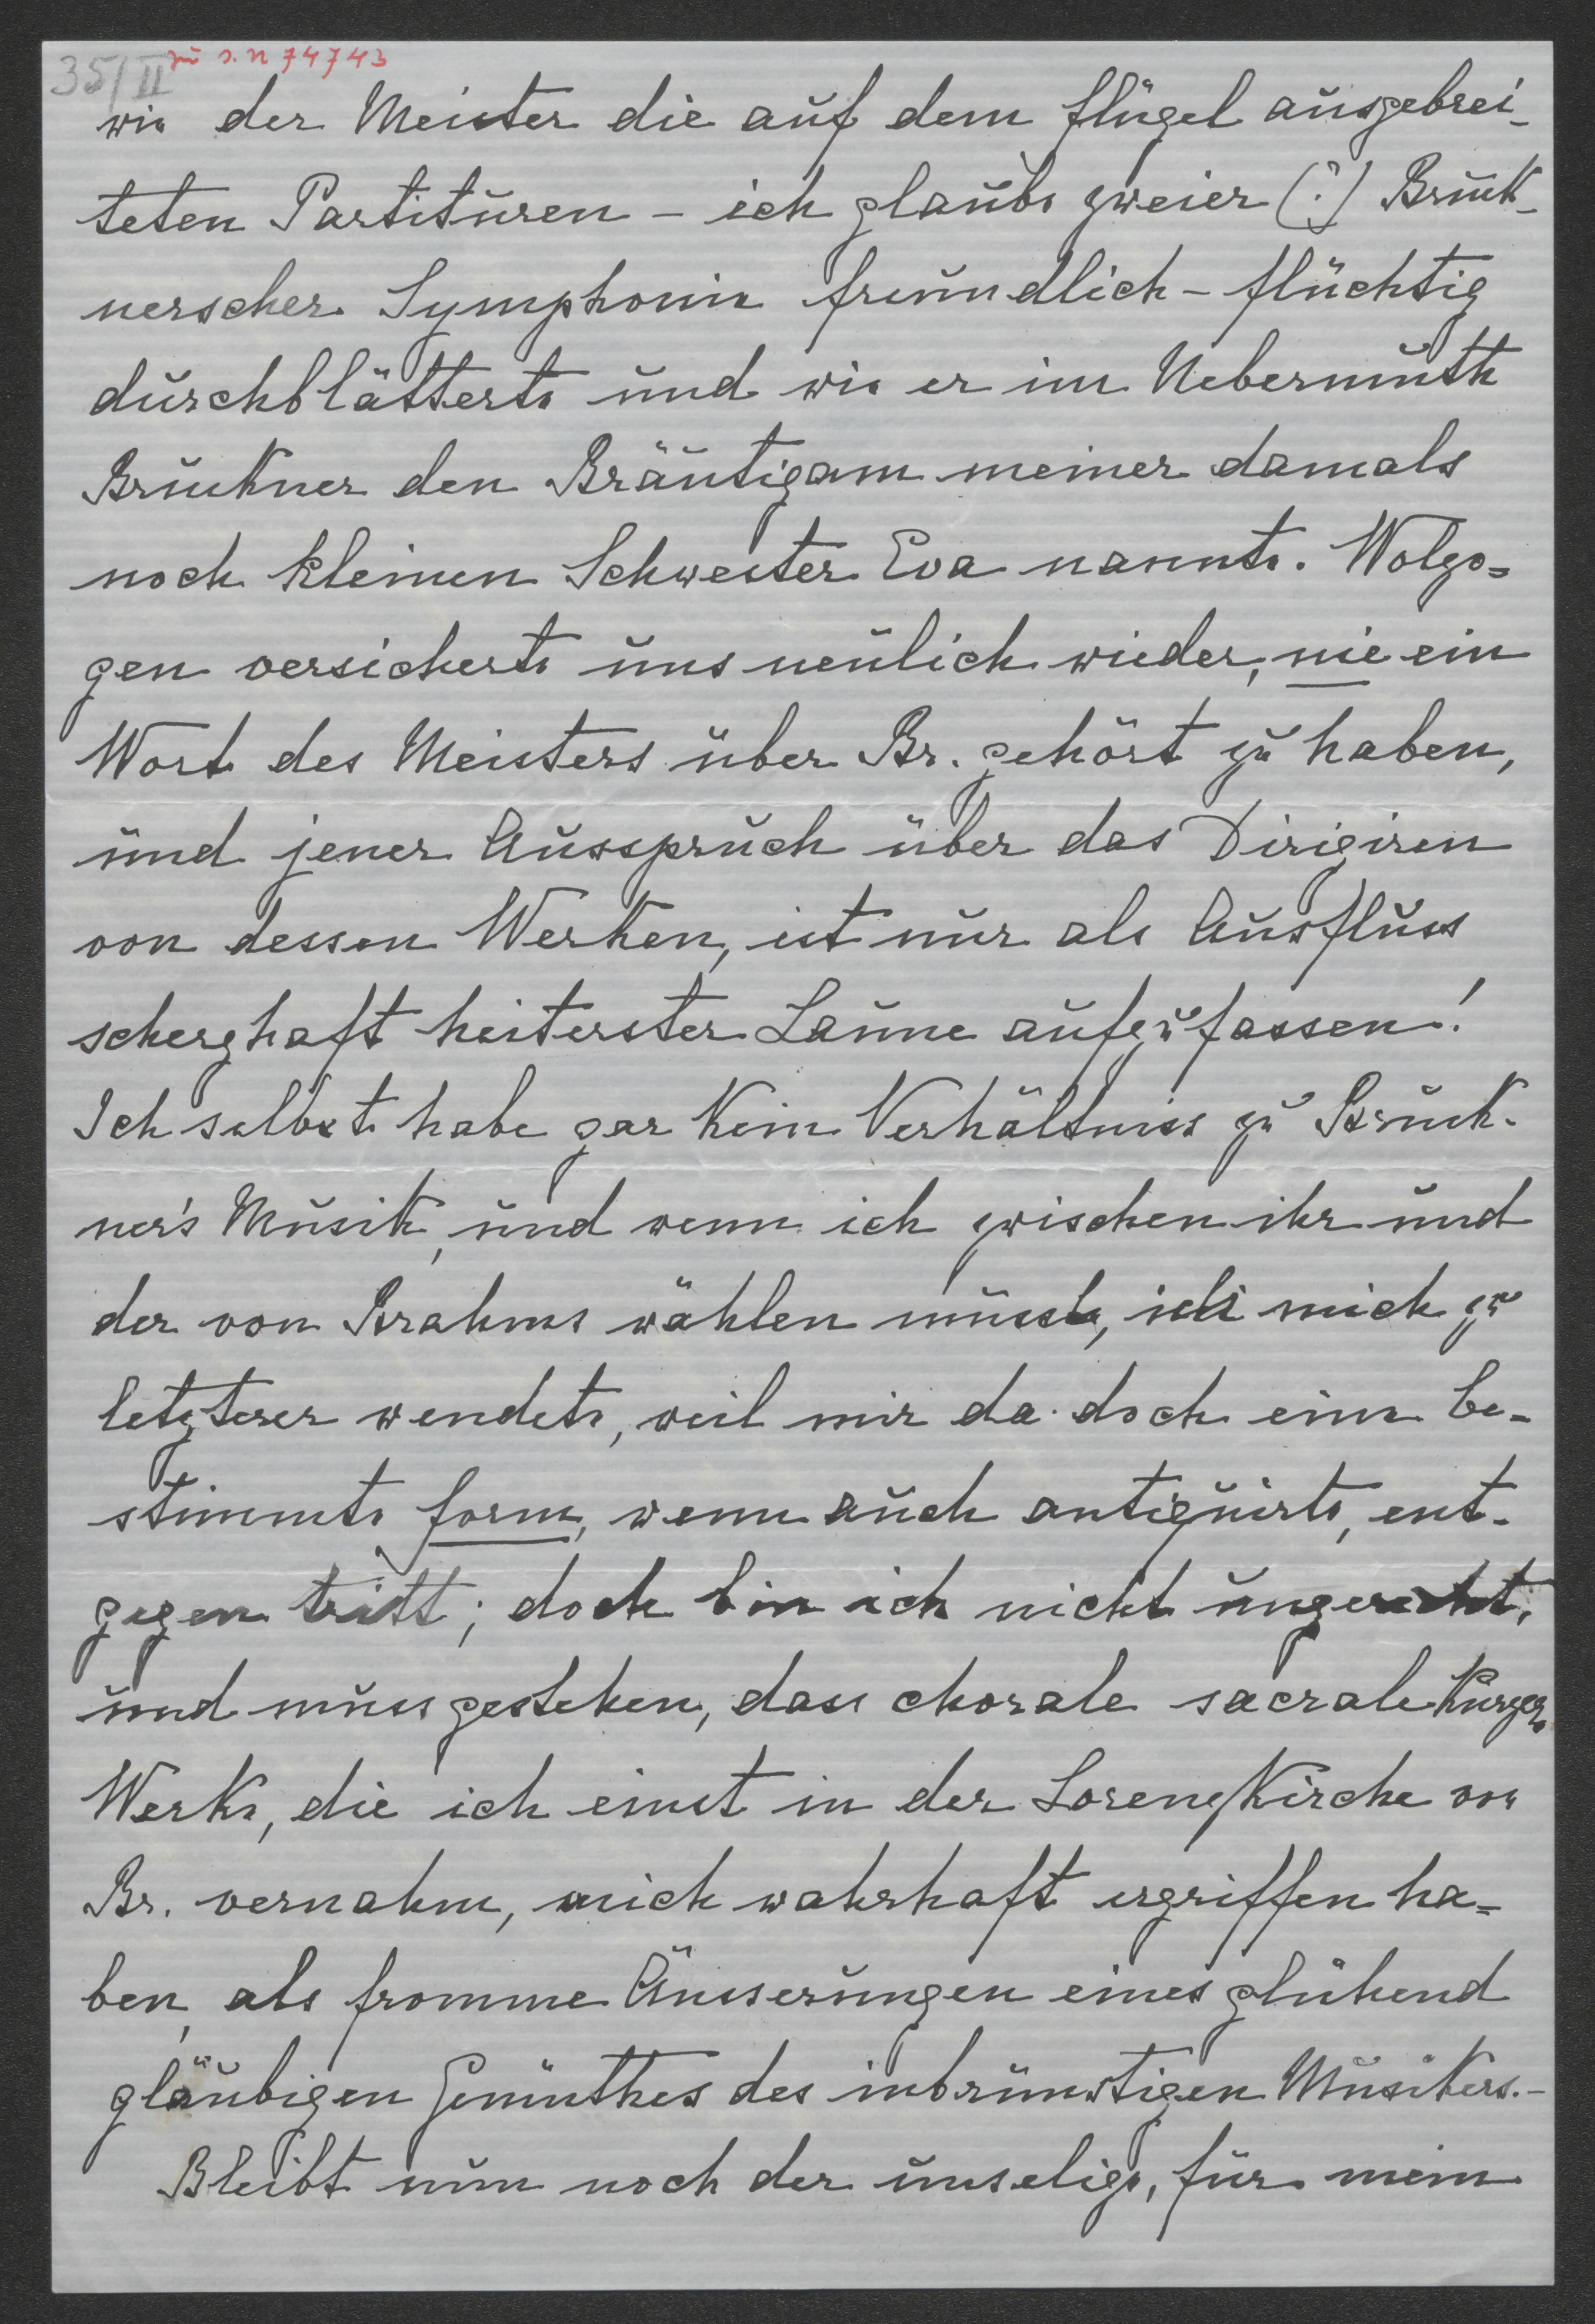 35/II zu S. N 74743
wie der Meister die auf dem Flügel ausgebrei-
teten Partituren – ich glaube zweier (?) Bruck-
nerscher Symphonien freundlich-flüchtig
durchblätterte und wie er im Uebermuth
Bruckner den Bräutigam meiner damals
noch kleinen Schwester Eva nannte. Wolzo=
gen versicherte uns neulich wieder, nie ein
Wort des Meisters über Br. gehört zu haben,
und jener Ausspruch über das Dirigiren
von dessen Werken, ist nur als Ausfluss
scherzhaft heiterster Laune aufzufassen!
Ich selbst habe gar kein Verhältniss zu Bruck-
ner's Musik, und wenn ich zwischen ihr und
der von Brahms wählen müsste, ich mich zu
letzterer wendete, weil mir da doch eine be-
stimmte Form, wenn auch antiquirte, ent-
gegen tritt; doch bin ich nicht ungerecht,
und muss gestehen, dass chorale sacrale kürzere
Werke, die ich einst in der Lorenzkirche von
Br. vernahm, mich wahrhaft ergriffen ha=
ben, als fromme Äusserungen eines glühend
gläubigen Gemüthes des inbrünstigen Musikers.–
Bleibt nun noch der unselige, für mein